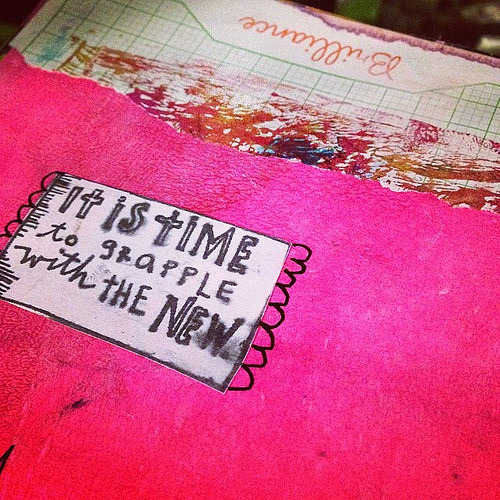 Brilliance
It is TIME
to grapple
with THE NEW